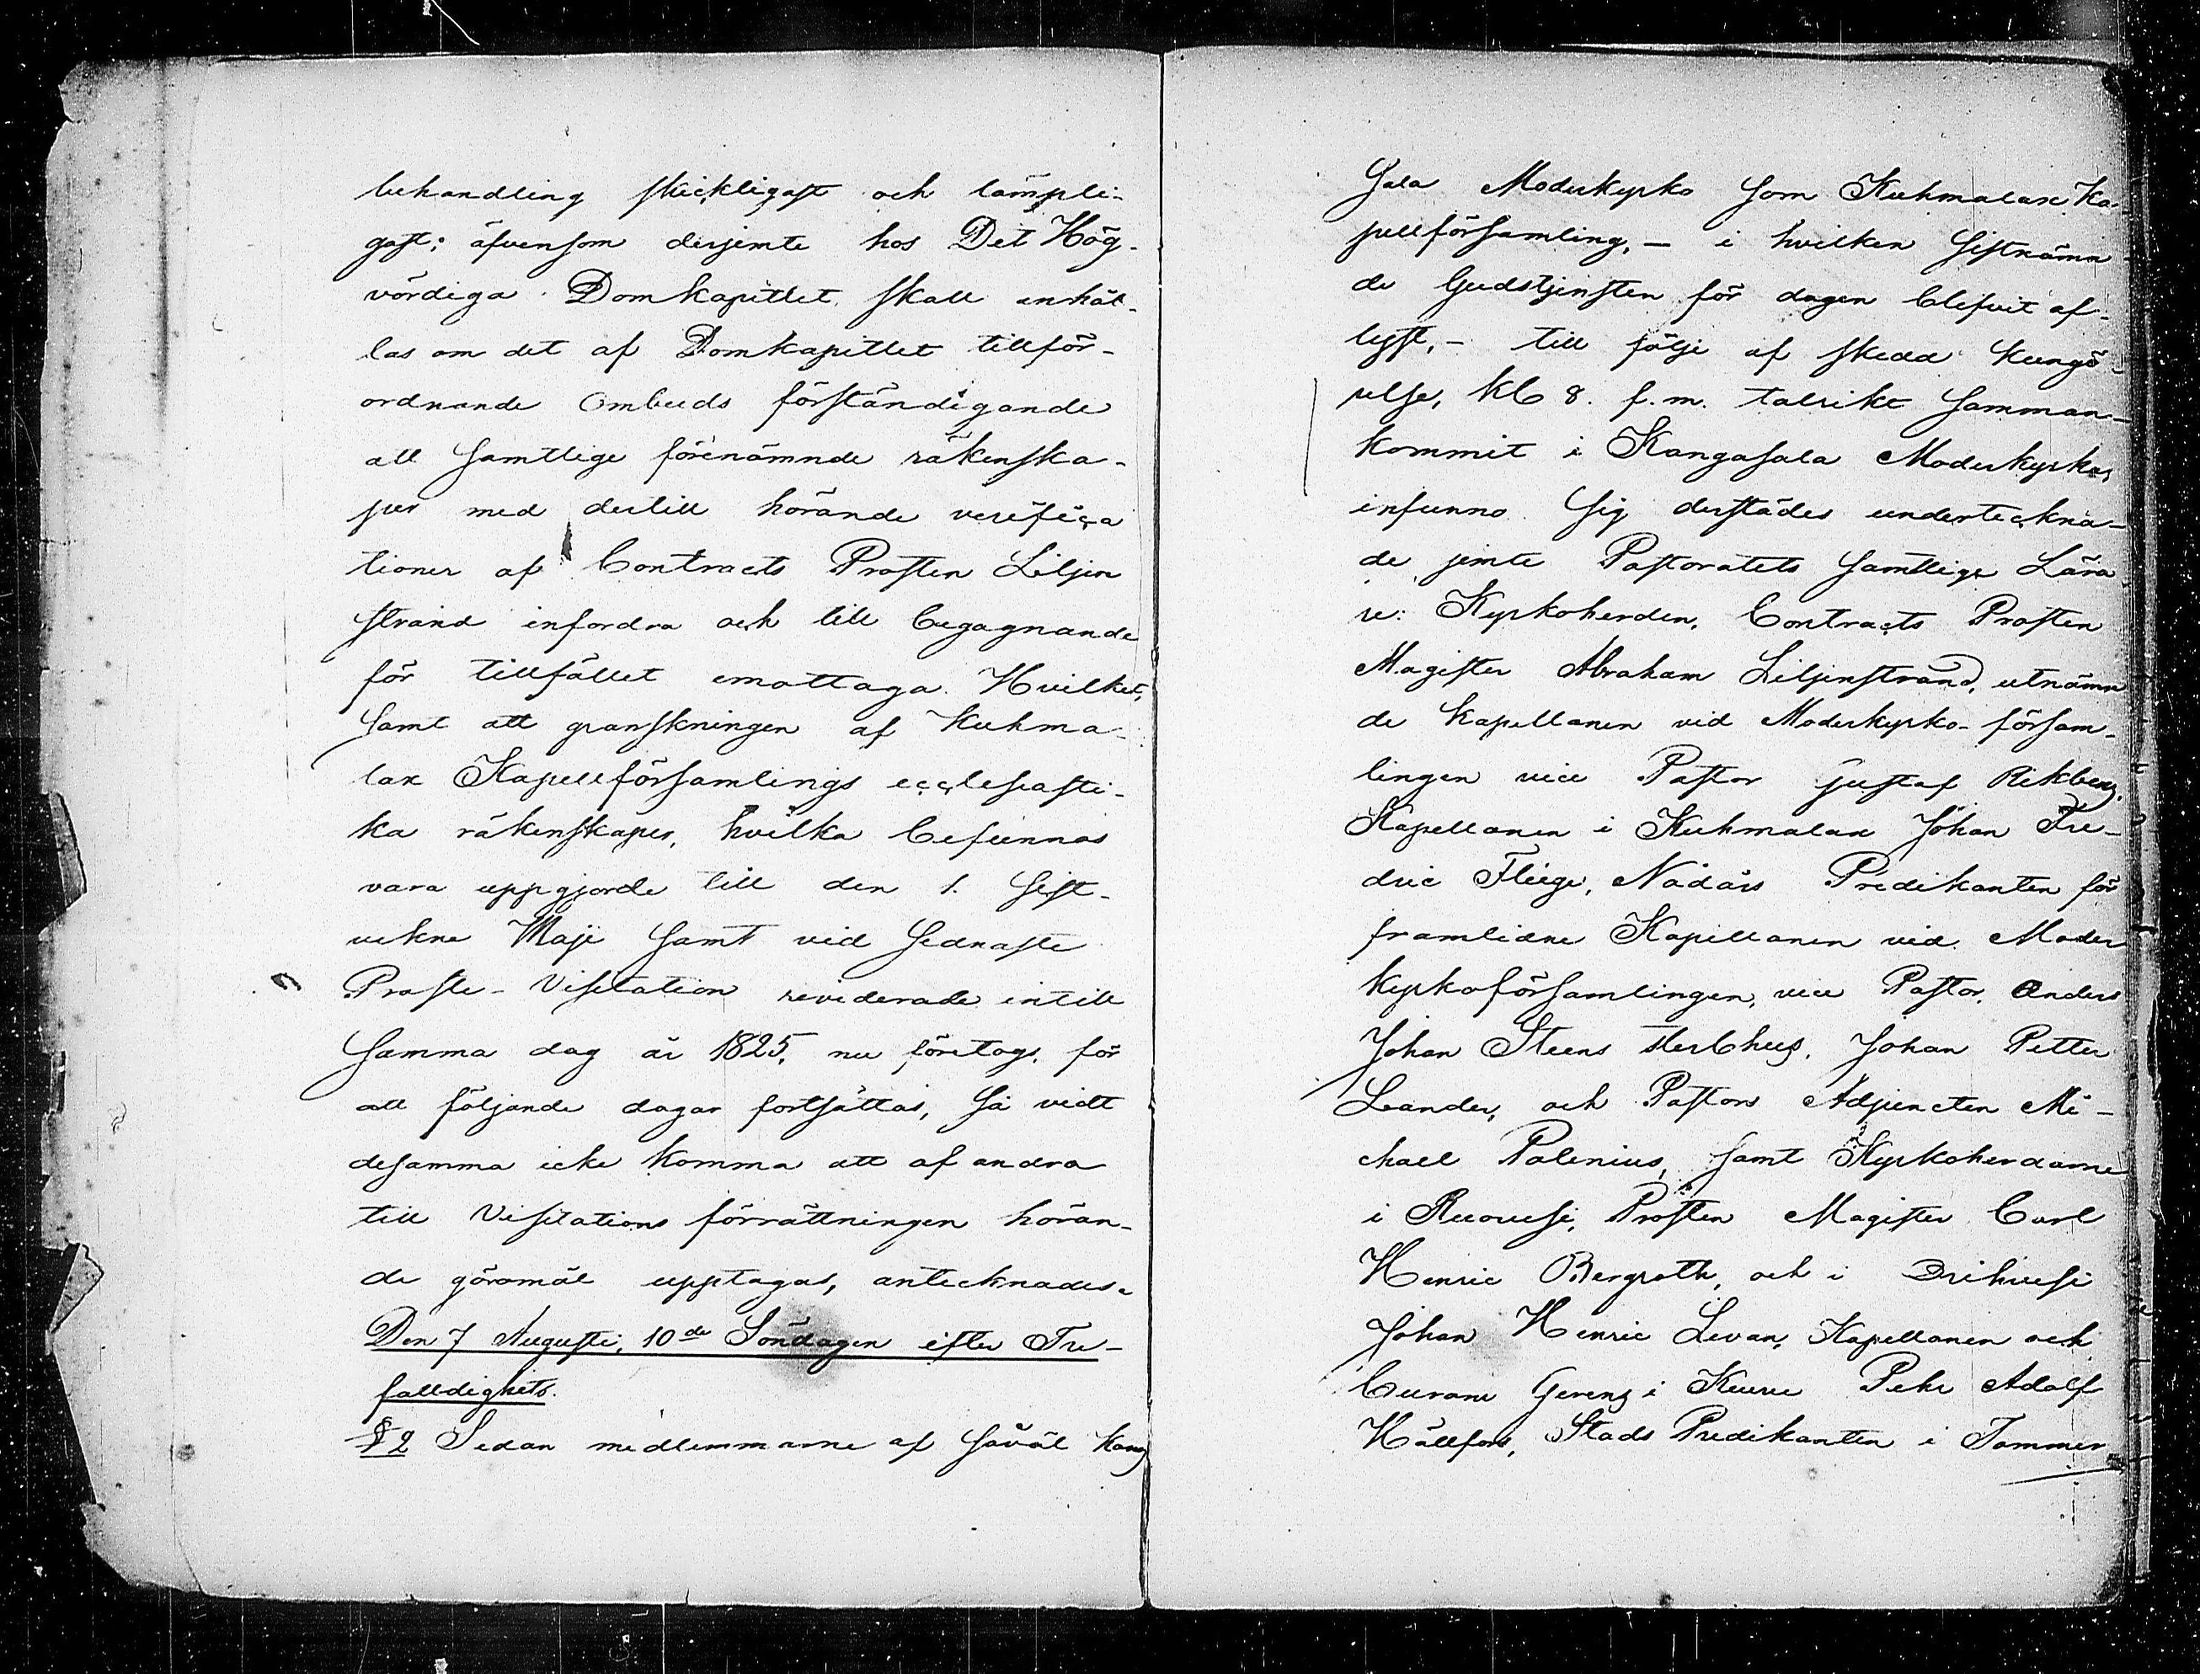 behandling skickligast och lämpli-
gast; äfvensom derjemte hos Det Hög-
vördiga Domkapitlet skall anhål-
las om det af Domkapitlet tillför-
ordnande Ombuds förständigande
att samtlige förenämnde räkenska-
per med dertill hörande verifica
tioner af Contracts Prosten Liljen
strand infordra och till begagnande
för tillfället emottaga. Hvilket,
samt att granskningen af Kuhma-
lax Kapellförsamlings ecclesiasti-
ka räkenskaper, hvilka befunnos
vara uppgjorde till den 1. sist-
vekne Maji samt vid sednaste
Proste-Visitation reviderade intill
samma dag år 1825, nu företogs, för
att följande dagar fortsättas, så vidt
desamma icke komma att af andra
till Visitations förrättningen höran-
de göromål upptagas, antecknades.
Den 7 Augusti, 10de Söndagen efter Tre-
falldighets.
§ 2 Sedan medlemmarne af såväl Kang
sala Moderkyrko som Kuhmalax Ka-
pellförsamling, - i hvilken sistnämn
de Gudstjensten för dagen blifvit af-
lyst, - till följe af skedd kungö-
relse, kl 8. f.m. talrikt samman-
kommit i Kangasala Moderkyrka,
infunno sig derstädes underteckna-
de jemte Pastoratets samtlige Lära
re: Kyrkoherden, Contracts Prosten
Magister Abraham Liljenstrand, utnämn
de Kapellanen vid Moderkyrko-försam-
lingen vice Pastor Gustaf Rikberg,
Kapellanen i Kuhmalax Johan Fre-
dric Fliege, Nådårs Predikanten för
framlidne Kapellanen vid Moder
kyrkoförsamlingen, vice Pastor, Anders
Johan Steens sterbhus, Johan Petter
Leander, och Pastors Adjuncten Mi-
chael Polenius, samt Kyrkoherdarne
i Ruovesi, Prosten Magister Carl
Henric Bergroth, och i Orihvesi
Johan Henric Levan, Kapellanen och
Curam Gerens i Kuru Pehr Adolf
Hällfors, Stads Predikanten i Tammer